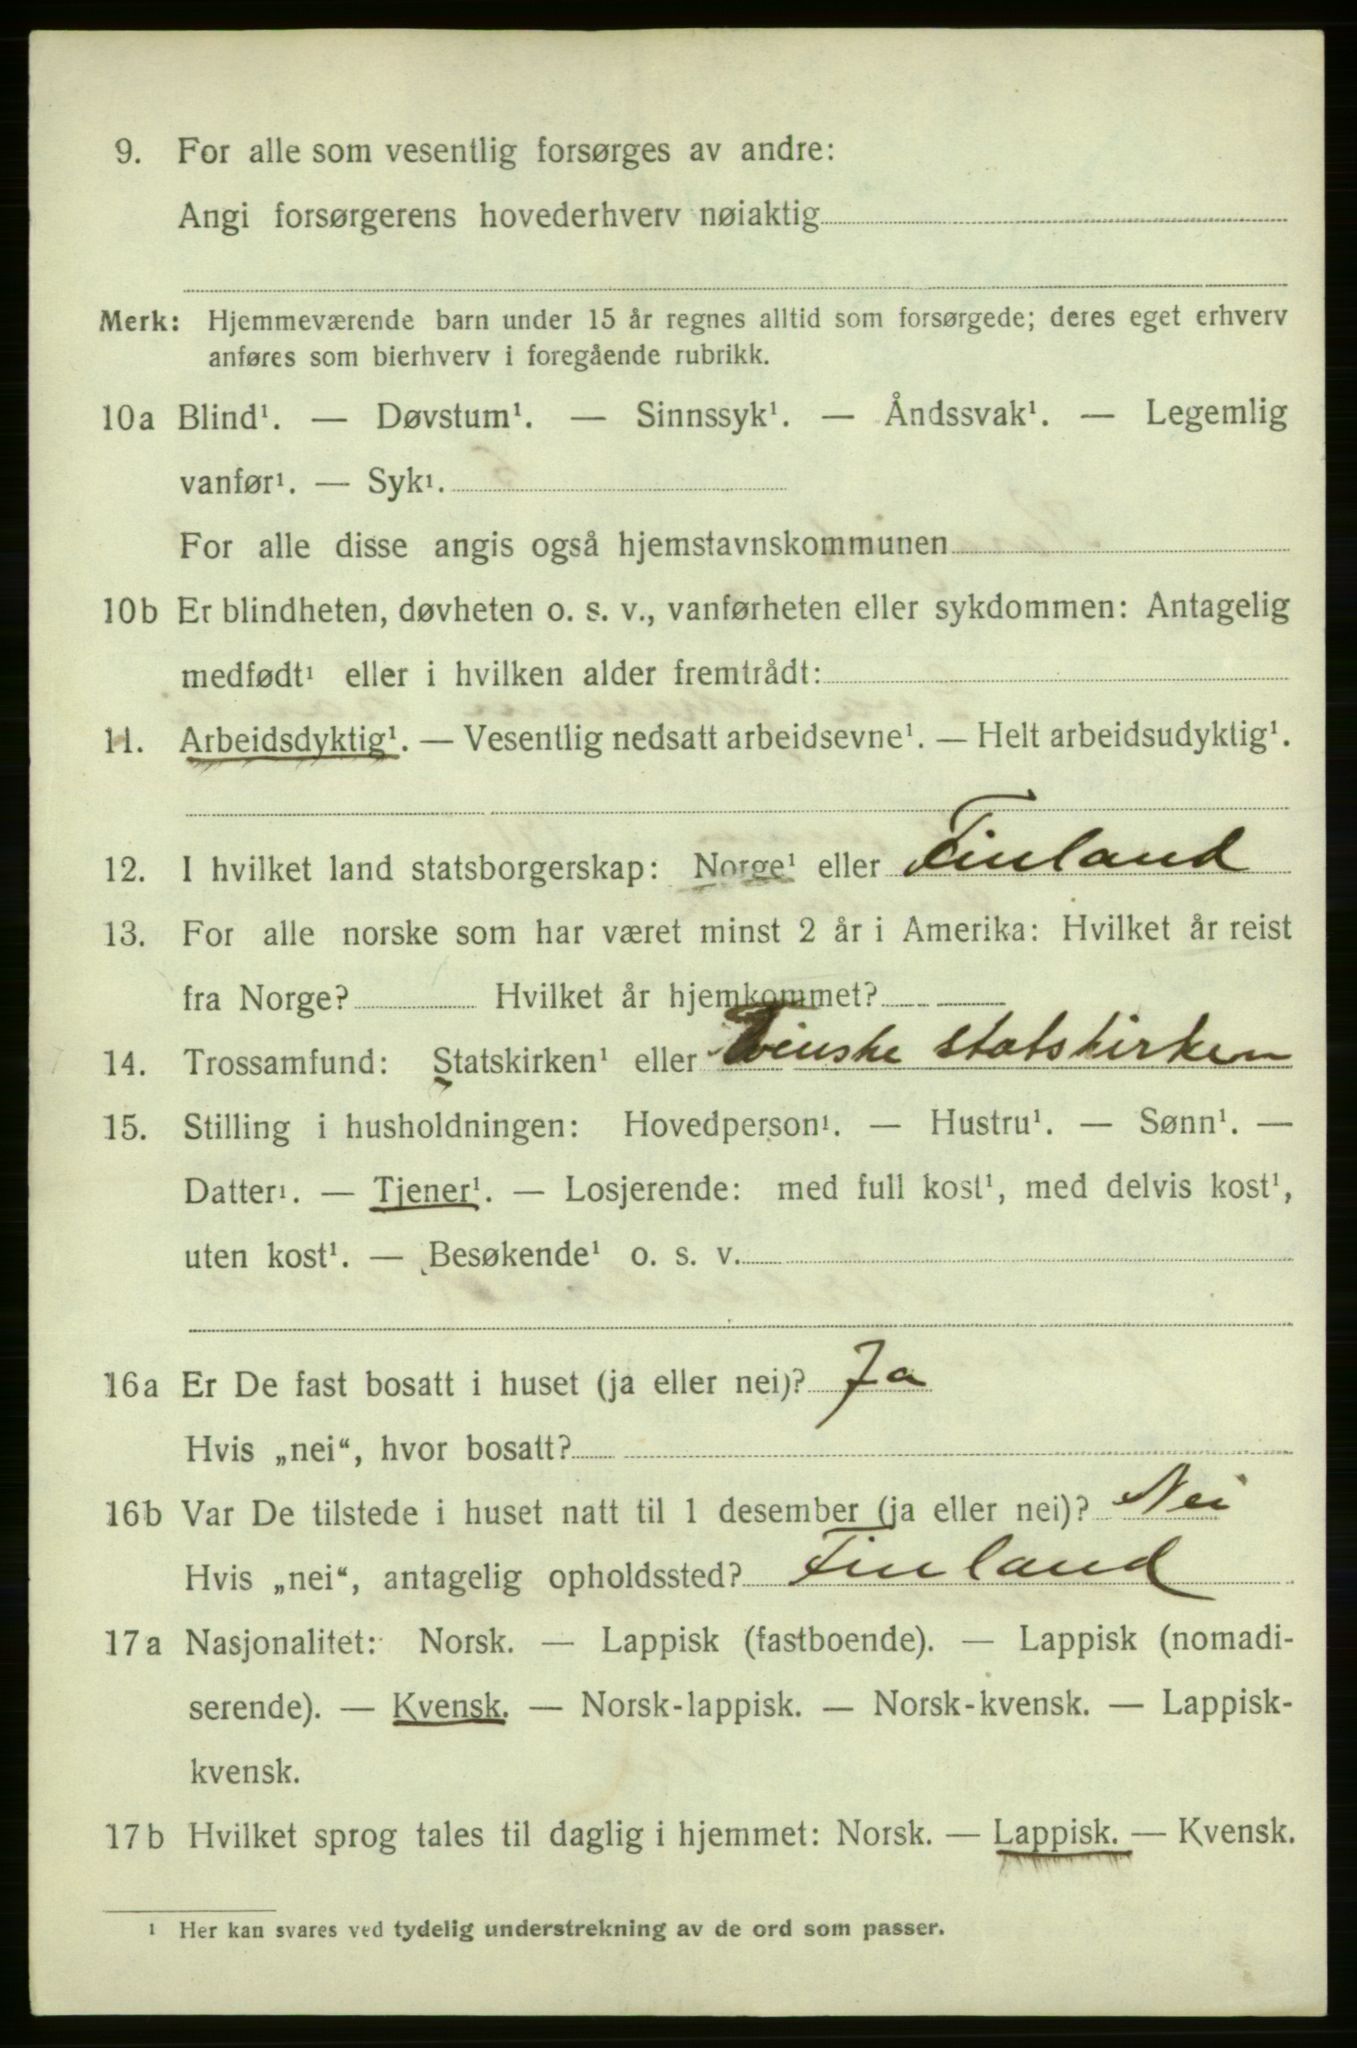 9. For alle som vesentlig forsørges av andre:
Angi forsørgerens hovederhverv nøiaktig
Merk: Hjemmeværende barn under 15 år regnes alltid som forsørgede; deres eget erhverv
anføres som bierhverv i foregående rubrikk.
10a Blind¹. — Døvstum¹. — Sinnssyk¹. — Åndssvak¹. — Legemlig
vanfør¹. — Syk¹.
For alle disse angis også hjemstavnskommunen
10b Er blindheten, døvheten o. s. v., vanførheten eller sykdommen: Antagelig
medfødt¹ eller i hvilken alder fremtrådt:
11. Arbeidsdyktig¹. — Vesentlig nedsatt arbeidsevne¹. — Helt arbeidsudyktig¹.
12. I hvilket land statsborgerskap: Norge¹ eller Finland
13. For alle norske som har været minst 2 år i Amerika: Hvilket år reist
fra Norge? Hvilket år hjemkommet?
14. Trossamfund: Statskirken¹ eller Finske statskirken
15. Stilling i husholdningen: Hovedperson¹. — Hustru¹. — Sønn¹. —
Datter¹. — Tjener¹. — Losjerende: med full kost¹, med delvis kost¹,
uten kost¹. — Besøkende¹ o. s. v.
16a Er De fast bosatt i huset (ja eller nei)? Ja
Hvis „nei“, hvor bosatt?
16b Var De tilstede i huset natt til 1 desember (ja eller nei)? Nei
Hvis „nei“, antagelig opholdssted? Finland
17a Nasjonalitet: Norsk. — Lappisk (fastboende). — Lappisk (nomadi-
serende). — Kvensk. — Norsk-lappisk. — Norsk-kvensk. — Lappisk-
kvensk.
17b Hvilket sprog tales til daglig i hjemmet: Norsk. — Lappisk. — Kvensk.
¹ Her kan svares ved tydelig understrekning av de ord som passer.